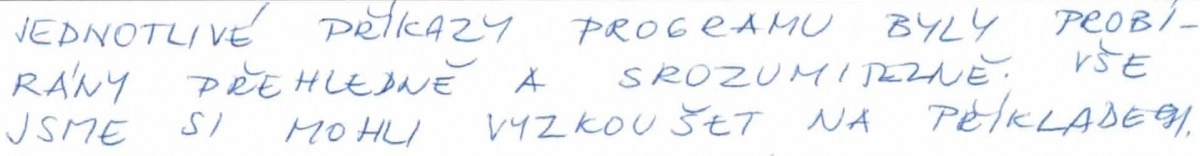 JEDNOTLIVÉ PŘÍKAZY PROGRAMU BYLY PROBÍ-
RÁNY PŘEHLEDNĚ A SROZUMITELNĚ. VŠE
JSME SI MOHLI VYZKOUŠET NA PŘÍKLADECH.